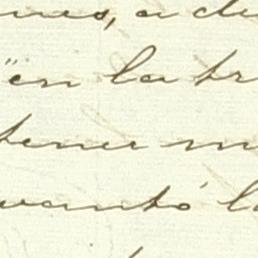 nes, a de
"en la tr
tener m
vantó l